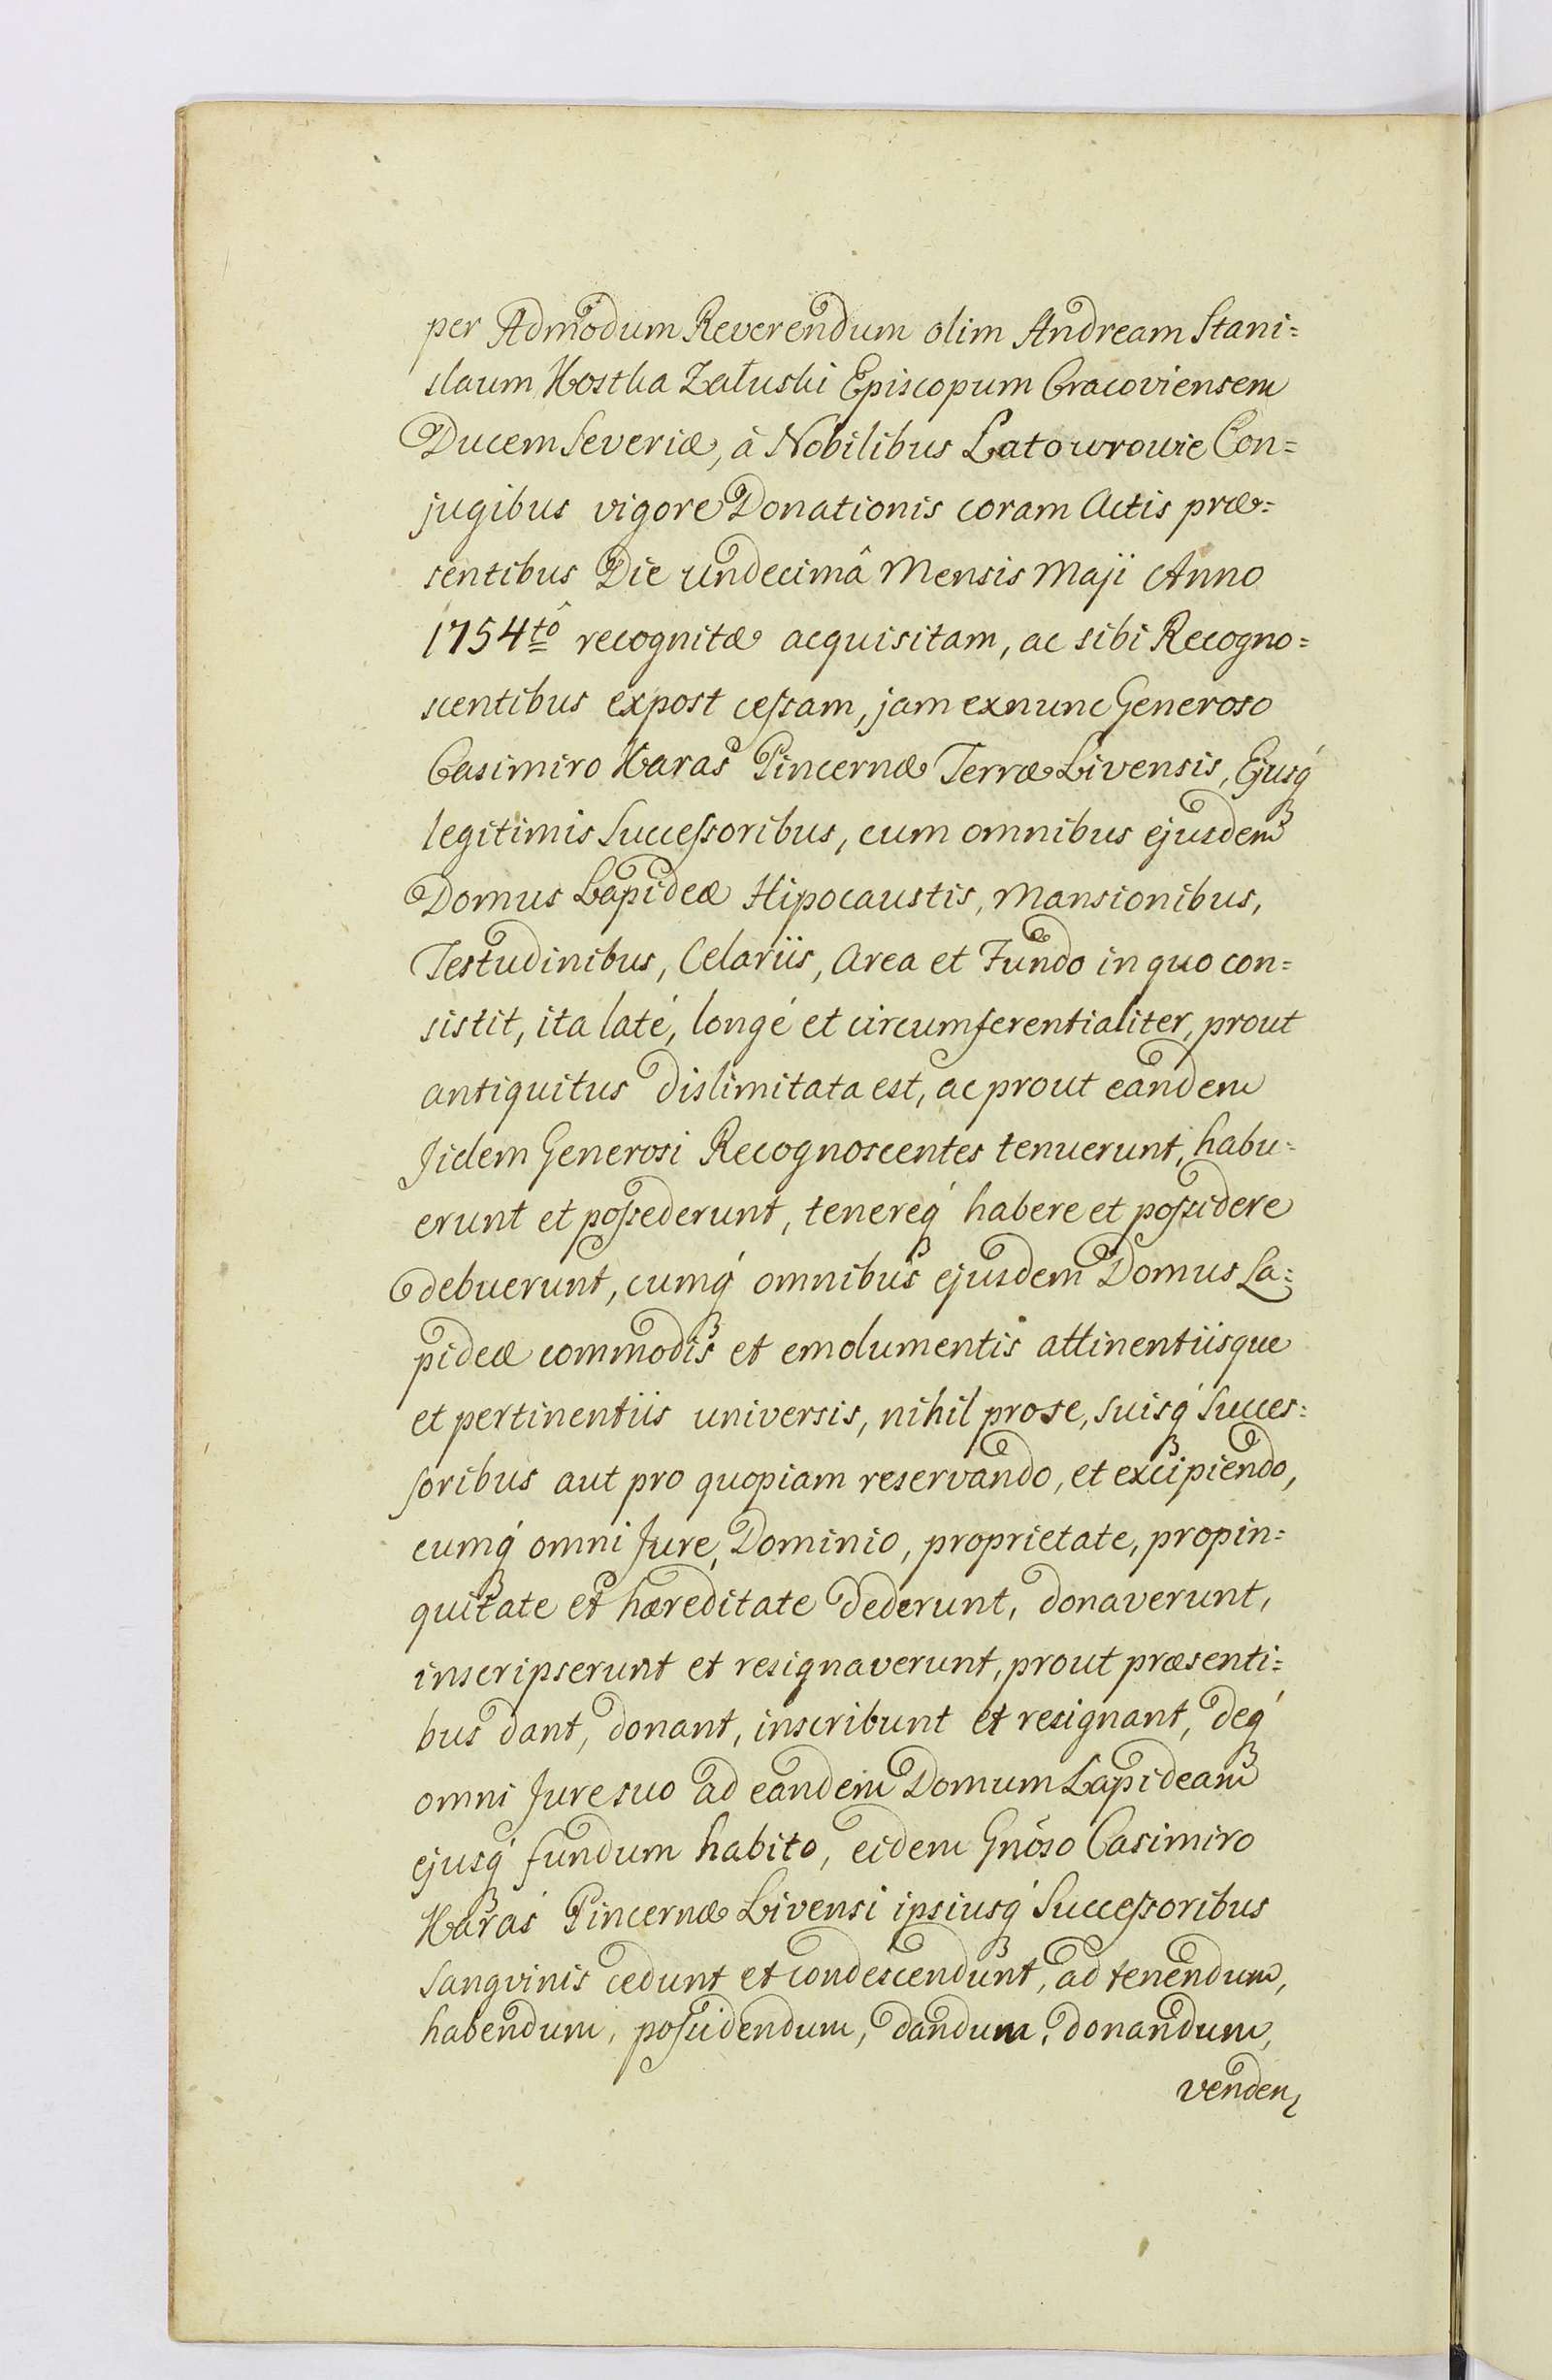 per Admodum Reverendum olim Andream Stani=
slaum Kostka Załuski Episcopum Cracoviensem
Ducem Severiæ, à Nobilibus Latowrowie Con=
jugibus vigore Donationis coram Actis præ=
sentibus Die undecimâ Mensis Maji Anno
1754tô recognitæ acquisitam, ac sibi Recogno=
scentibus expost cessam, jam exnunc Generoso
Casimiro Karaś Pincernæ Terræ Livensis, Ejusq́
legitimis Successoribus, cum omnibus ejusdem
Domus Lapideæ Hipocaustis, Mansionibus,
Testudinibus, Celariis, Area et Fundo in quo con=
sistit, ita laté, longé et circumferentialiter, prout
antiquitus dislimitata est, ac prout eandem
Jidem Generosi Recognoscentes tenuerunt, habu=
erunt et possederunt, tenereq́ habere et possidere
debuerunt, cumq́ omnibus ejusdem Domus La=
pideæ commodis et emolumentis attinentiisque
et pertinentiis universis, nihil pro se, suisq́ Succes=
soribus aut pro quopiam reservando, et excipiendo,
cumq́ omni Jure, Dominio, proprietate, propin=
quitate et hæreditate dederunt, donaverunt,
inscripserunt et resignaverunt, prout præsenti=
bus dant, donant, inscribunt et resignant, deq́
omni Jure suo ad eandem Domum Lapideam
ejusq́ fundum habito, eidem Gnõso Casimiro
Karaś Pincernæ Livensi ipsiusq́ Successoribus
Sangvinis cedunt et condescendunt, ad tenendum,
habendum, possidendum, dandum, donandum,
venden